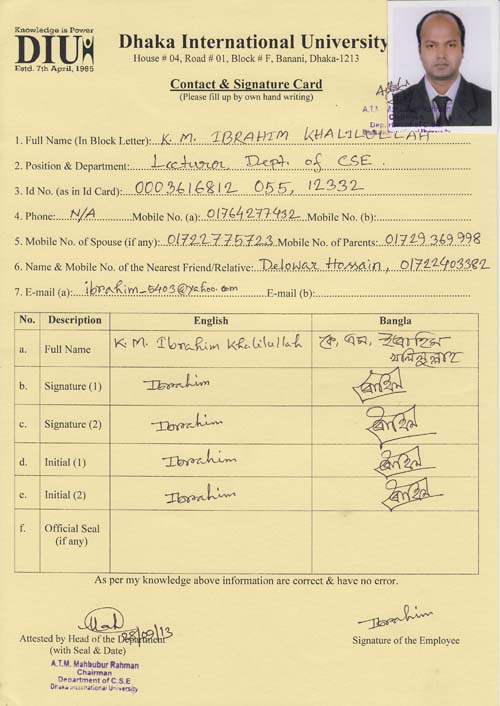 Knowledge is Power
DIU
Estd. 7th April, 1995
Dhaka International University
House # 04, Road # 01, Block # F, Banani, Dhaka-1213
Contact & Signature Card
(Please fill up by own hand writing)
A.T.M. Mahbubur
Chairman
1. Full Name (In Block Letter): K. M. IBRAHIM KHALILULLAH
2. Position & Department: Lecturer, Dept. of CSE.
3. Id No. (as in Id Card): 0003616812 055, 12332
4. Phone: N/A Mobile No. (a): 01764277432 Mobile No. (b):
5. Mobile No. of Spouse (if any): 01722775723 Mobile No. of Parents: 01729369998
6. Name & Mobile No. of the Nearest Friend/Relative: Delowar Hossain, 01722403382
7. E-mail (a): ibrahim_5403@yahoo.com E-mail (b):
No. Description English Bangla
a. Full Name K. M. Ibrahim Khalilullah কে, এম, ইব্রাহিম
খলিলুল্লাহ
b. Signature (1) Ibrahim
c. Signature (2) Ibrahim
d. Initial (1) Ibrahim
e. Initial (2) Ibrahim
f. Official Seal
(if any)
As per my knowledge above information are correct & have no error.
28/09/13
Ibrahim
Attested by Head of the Department
(with Seal & Date)
Signature of the Employee
A.T.M. Mahbubur Rahman
Chairman
Department of C.S.E
Dhaka International University